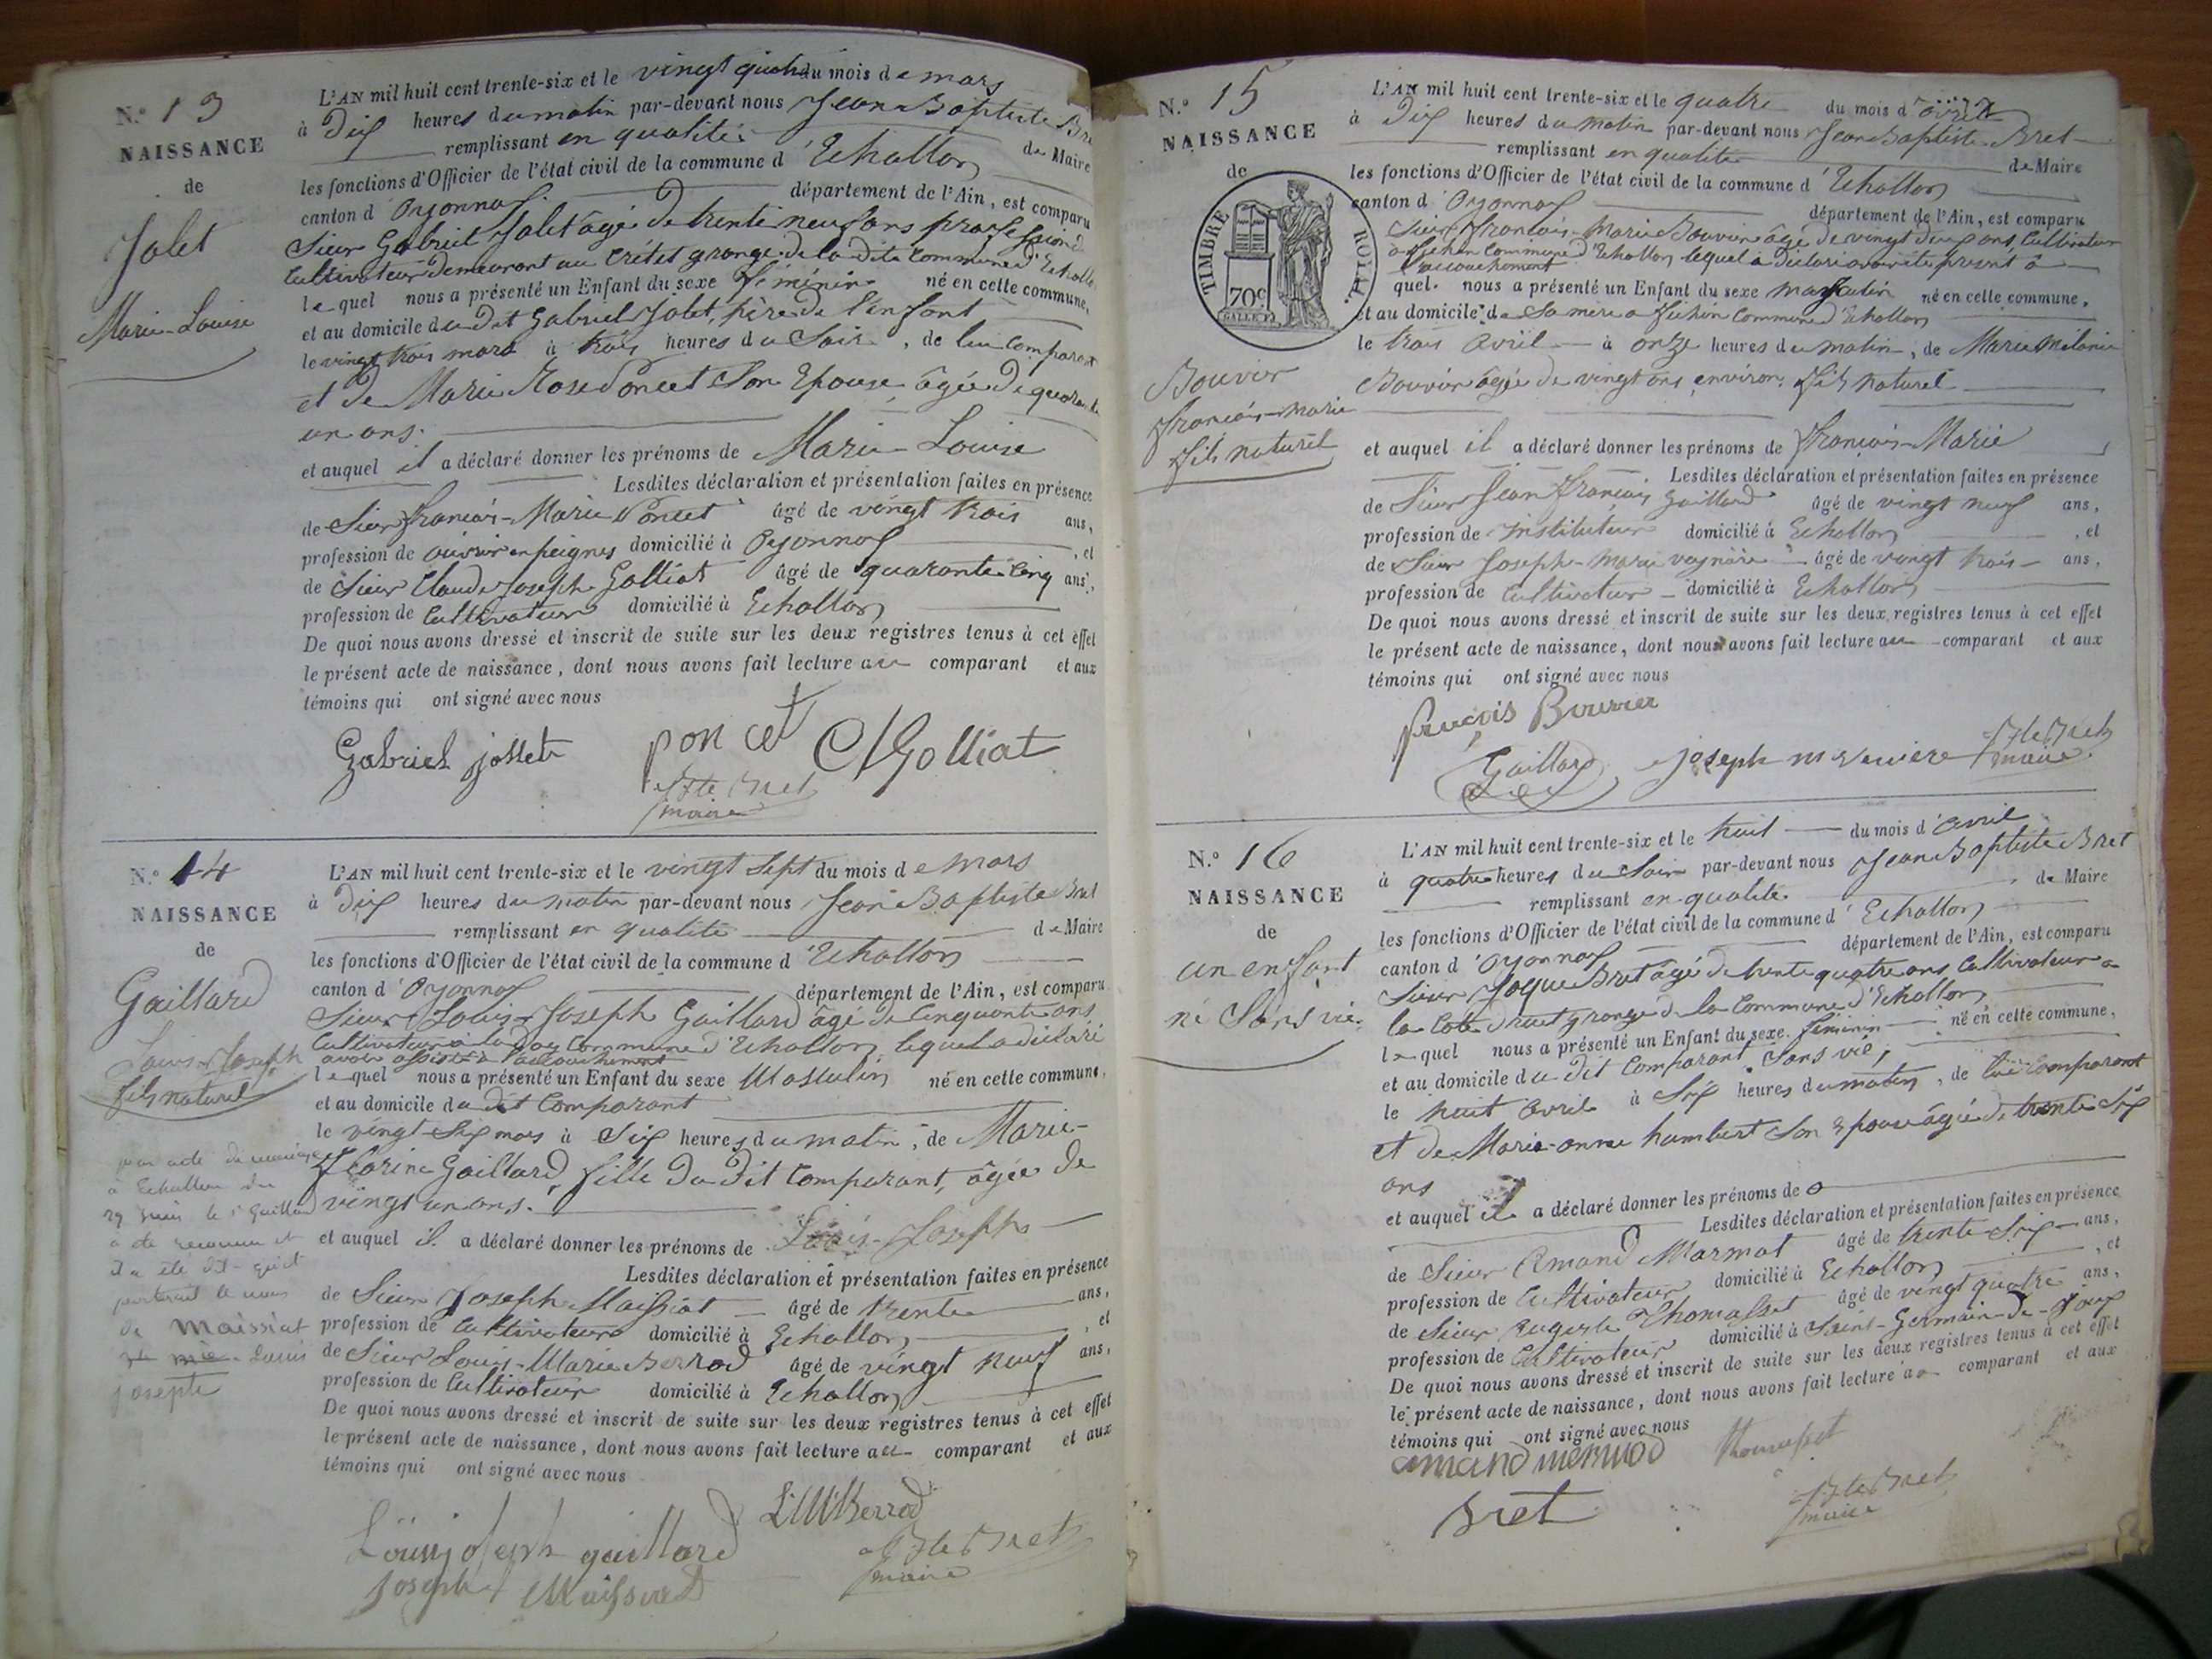 N.o 13
NAISSANCE
de
Jolet
Marie-Louise
L'AN mil huit cent trente-six et le vingt quatre du mois de mars
à Dix heures du matin par-devant nous Jean Baptiste Bret
remplissant en qualité de Maire
les fonctions d'Officier de l'état civil de la commune d'Echallon
canton d'Oyonnax département de l'Ain, est comparu
Sieur Gabriel Jolet âgé de trente neuf ans profession de
Cultivateur demeurant au Crétet grange de la dite Commune d'Echallon
lequel nous a présenté un Enfant du sexe féminin né en cette commune,
et au domicile du Dit Gabriel Jolet, père de l'enfant
le vingt trois mars à trois heures du Soir, de lui Comparant
et de Marie Rose Poncet Son Epouse, âgée de quarante
un ans.
et auquel il a déclaré donner les prénoms de Marie-Louise
Lesdites déclaration et présentation faites en présence
de Sieur François-Marie Poncet âgé de vingt trois ans,
profession de ouvrier en peignes domicilié à Oyonnax, et
de Sieur Claude Joseph Golliat âgé de quarante Cinq ans,
profession de Cultivateur domicilié à Echallon
De quoi nous avons dressé et inscrit de suite sur les deux registres tenus à cet effet
le présent acte de naissance, dont nous avons fait lecture au comparant et aux
témoins qui ont signé avec nous
Gabriel jollet poncet CJGolliat
Bte Bret
maire
N.o 14
NAISSANCE
de
Gaillard
Louis-Joseph
fils naturel
par acte de mariage
à Echallon du
29 juin le Sr Gaillard
a été reconnu et
il a été dit qu'il
porterait le nom
de Maissiat
Louis
joseph
L'AN mil huit cent trente-six et le vingt Sept du mois de Mars
à Dix heures du matin par-devant nous Jean Baptiste Bret
remplissant en qualité de Maire
les fonctions d'Officier de l'état civil de la commune d'Echallon
canton d'Oyonnax département de l'Ain, est comparu
Sieur Louis-Joseph Gaillard âgé de Cinquante ans
Cultivateur Commune d'Echallon, lequel a déclaré
avoir assisté à l'accouchement
lequel nous a présenté un Enfant du sexe Masculin né en cette commune,
et au domicile du dit Comparant
le vingt Six mars à Six heures du matin, de Marie-
Gaillard, fille du Dit Comparant, âgée de
vingt un ans.
et auquel il a déclaré donner les prénoms de Louis-Joseph
Lesdites déclaration et présentation faites en présence
de Sieur Joseph Maissiat âgé de trente ans,
profession de Cultivateur domicilié à Echallon, et
de Sieur Louis-Marie Berrod âgé de vingt neuf ans,
profession de Cultivateur domicilié à Echallon
De quoi nous avons dressé et inscrit de suite sur les deux registres tenus à cet effet
le présent acte de naissance, dont nous avons fait lecture au comparant et aux
témoins qui ont signé avec nous
Louis joseph gaillard L M Berrod
Joseph Maissiat Bte Bret
maire
N.o 15
NAISSANCE
de
TIMBRE ROYAL
70c
Bouvier
François-Marie
fils naturel
L'AN mil huit cent trente-six et le quatre du mois d'avril
à Dix heures du matin par-devant nous Jean Baptiste Bret
remplissant en qualité de Maire
les fonctions d'Officier de l'état civil de la commune d'Echallon
canton d'Oyonnax département de l'Ain, est comparu
Sieur François-Marie Bouvier âgé de vingt deux ans, Cultivateur
Commune d'Echallon lequel a déclaré avoir été présent à
l'accouchement
quel nous a présenté un Enfant du sexe masculin né en cette commune,
et au domicile de Sa mère Commune d'Echallon
le trois Avril à onze heures du matin, de Marie Mélanie
Bouvier âgée de vingt ans environ, fils naturel
et auquel il a déclaré donner les prénoms de François-Marie
Lesdites déclaration et présentation faites en présence
de Sieur Jean François Gaillard âgé de vingt neuf ans,
profession de instituteur domicilié à Echallon, et
de Sieur Joseph-Marie âgé de vingt trois ans,
profession de Cultivateur domicilié à Echallon
De quoi nous avons dressé et inscrit de suite sur les deux registres tenus à cet effet
le présent acte de naissance, dont nous avons fait lecture au comparant et aux
témoins qui ont signé avec nous
François Bouvier
Gaillard joseph m Bte Bret
maire
N.o 16
NAISSANCE
de
un enfant
né Sans vie.
L'AN mil huit cent trente-six et le huit du mois d'avril
à quatre heures du Soir par-devant nous Jean Baptiste Bret
remplissant en qualité de Maire
les fonctions d'Officier de l'état civil de la commune d'Echallon
canton d'Oyonnax département de l'Ain, est comparu
Sieur Bret âgé de trente quatre ans Cultivateur à
grange de la Commune d'Echallon
lequel nous a présenté un Enfant du sexe féminin né en cette commune,
et au domicile du Dit Comparant, Sans vie,
le huit Avril à Six heures du matin, de lui Comparant
et de Marie-anne humbert Son Epouse âgée de trente Six
ans
et auquel il a déclaré donner les prénoms de
Lesdites déclaration et présentation faites en présence
de Sieur Amand Marmot âgé de trente Six ans,
profession de Cultivateur domicilié à Echallon, et
de Sieur Auguste Thomasset âgé de vingt quatre ans,
profession de Cultivateur domicilié à Saint-Germain-de-Joux
De quoi nous avons dressé et inscrit de suite sur les deux registres tenus à cet effet
le présent acte de naissance, dont nous avons fait lecture au comparant et aux
témoins qui ont signé avec nous
amand Thomasset
Bret Bte Bret
maire